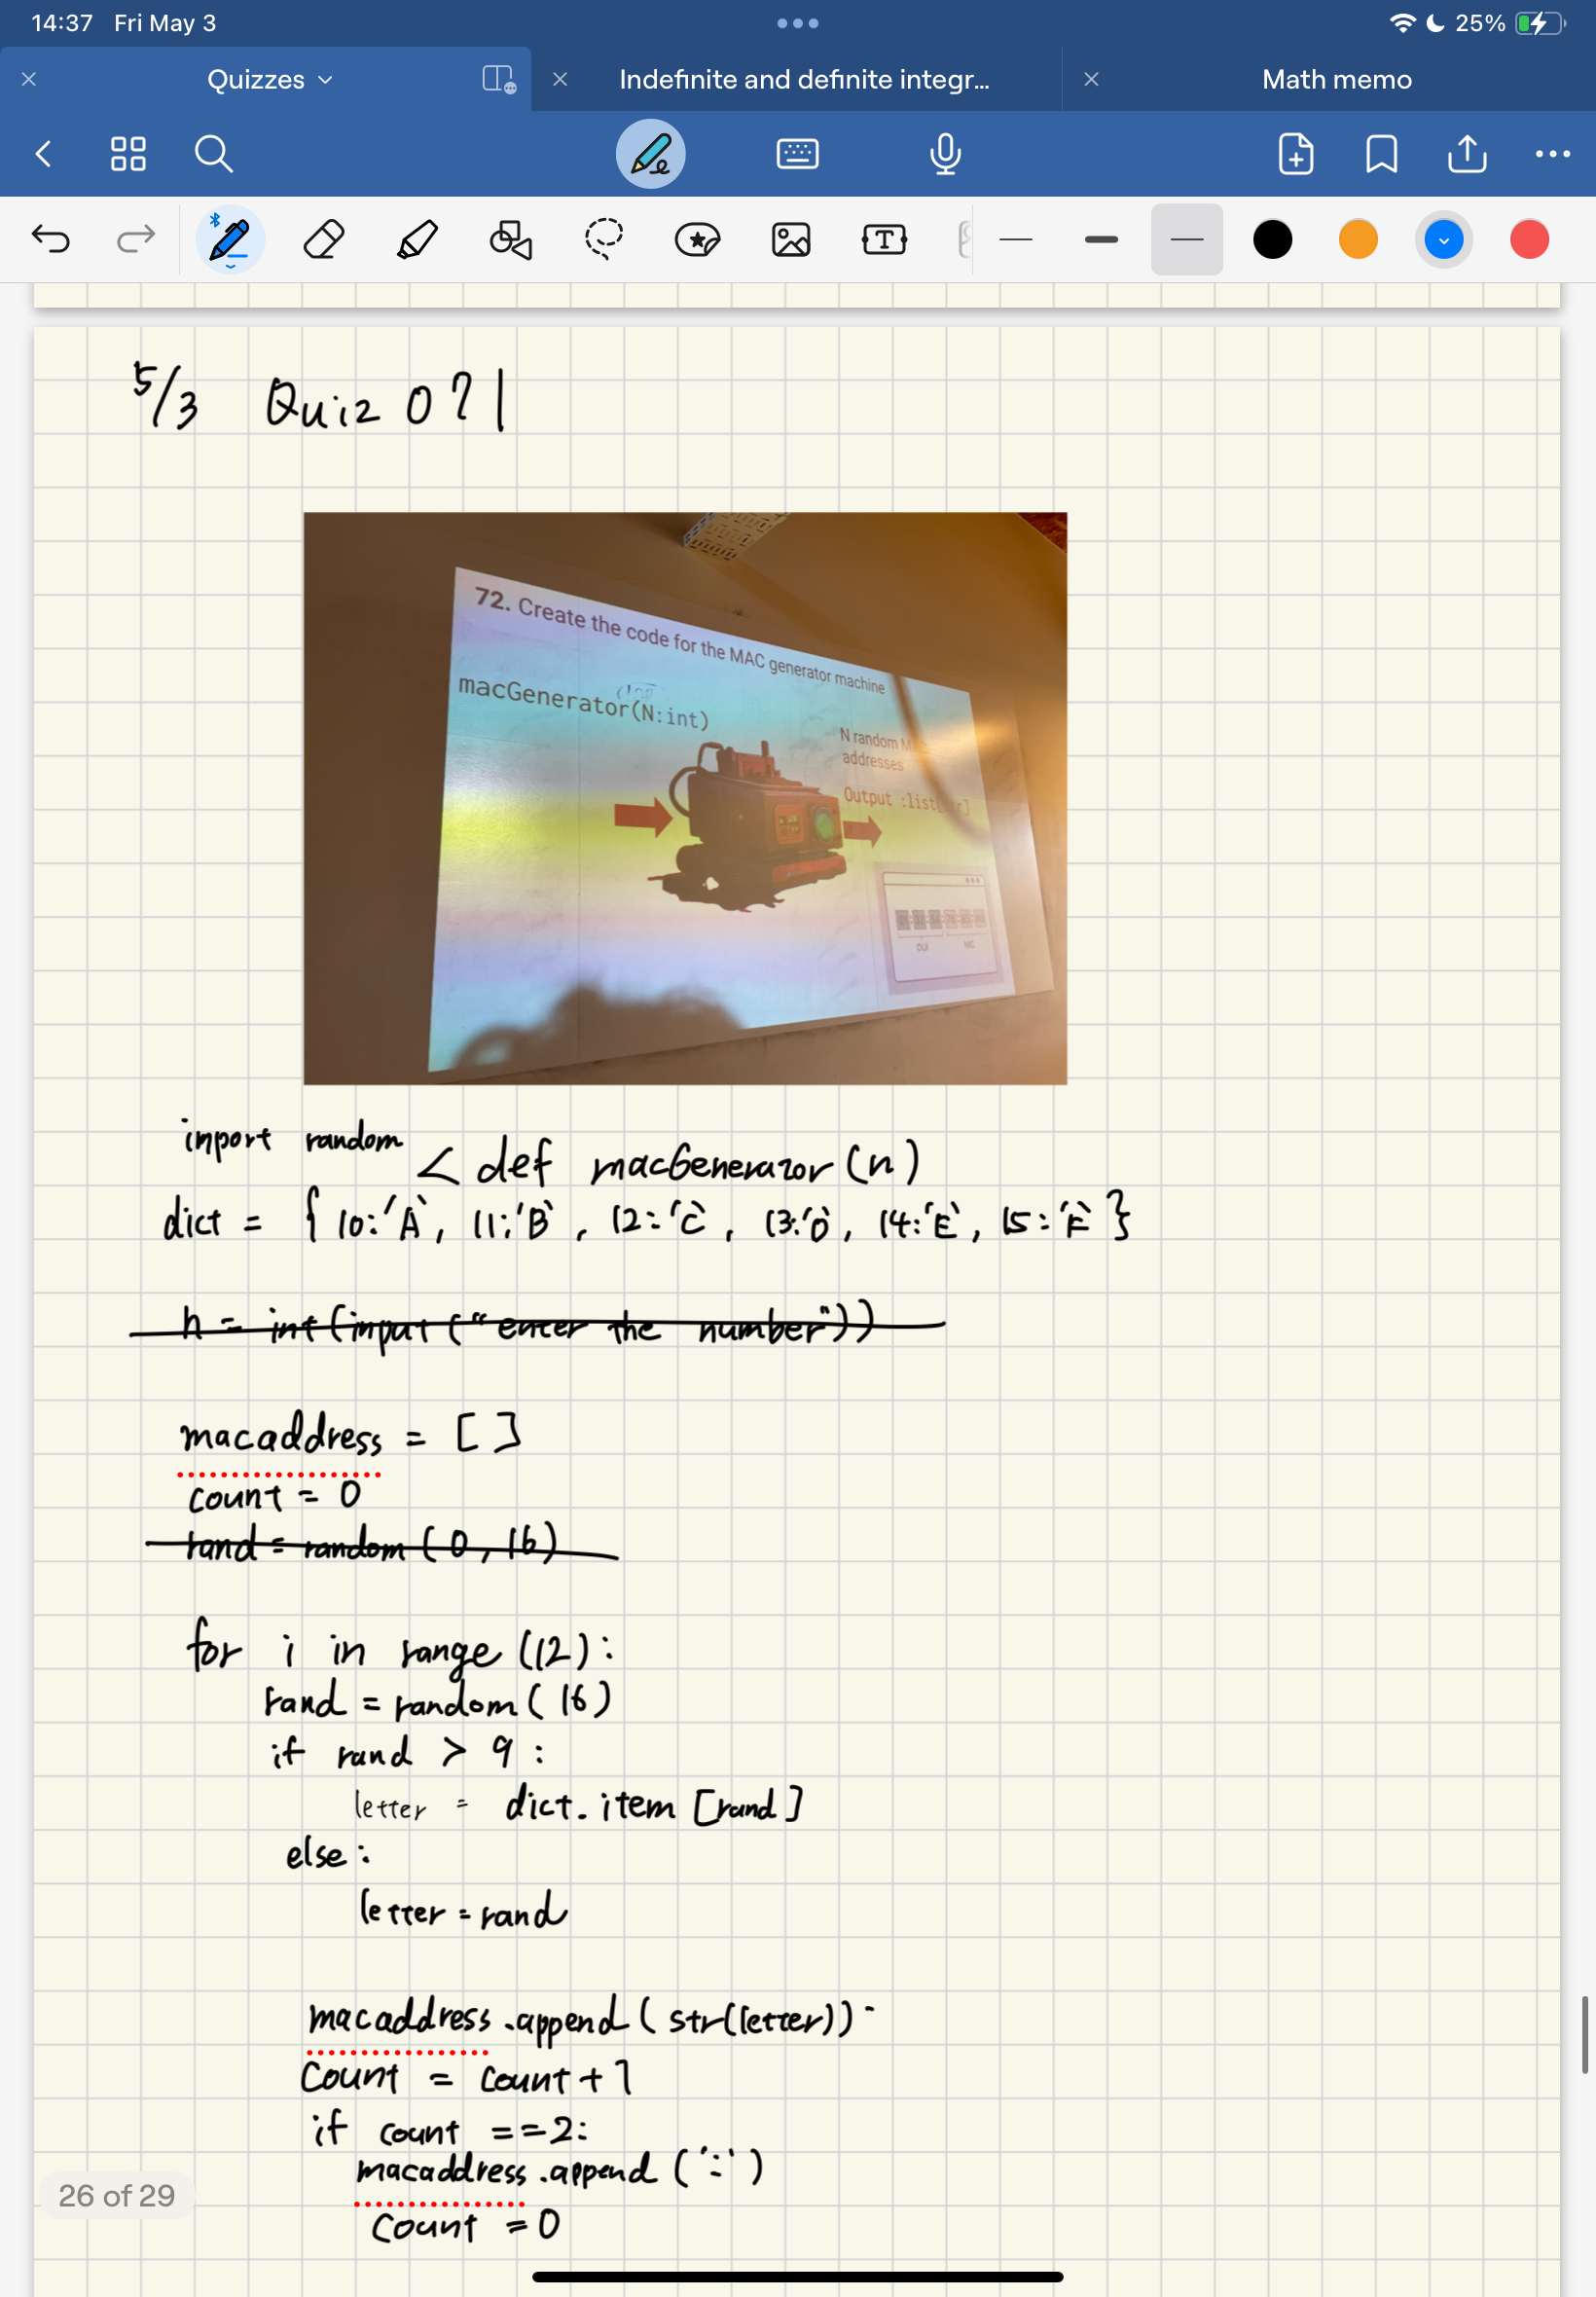 14:37 Fri May 3
25%
Quizzes
Indefinite and definite integr...
Math memo
5/3 Quiz 0?|
72. Create the code for the MAC generator machine
macGenerator(N:int)
N random
addresses
Output :list
OUI
NIC
inport random < def macGenerator (n)
dict = { 10:'A', 11:'B', 12:'C', 13:'D', 14:'E', 15:'F' }
n = int(input("enter the number"))
macaddress = [ ]
count = 0
rand = random (0, 16)
for i in range (12):
rand = random( 16)
if rand > 9 :
letter = dict. item [rand]
else :
letter = rand
macaddress .append( str(letter))
Count = count + 1
if count ==2:
macaddress .append (':')
Count =0
26 of 29